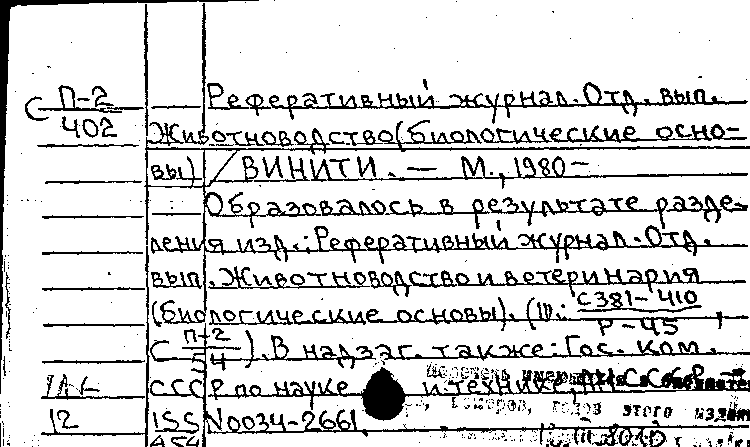 С П-2/402 Реферативный журнал. Отд. вып.
Животноводство (биологические осно-
вы) / ВИНИТИ. — М., 1980-
Образовалось в результате разде-
ления изд.: Реферативный журнал. Отд.
вып. Животноводство и ветеринария
(биологические основы). (Ш: С381-410/Р-45,
С П-2/54). В надзаг. также: Гос. ком.
СССР по науке и технике, АН СССР.
12 ISSN 0034-2661
этого